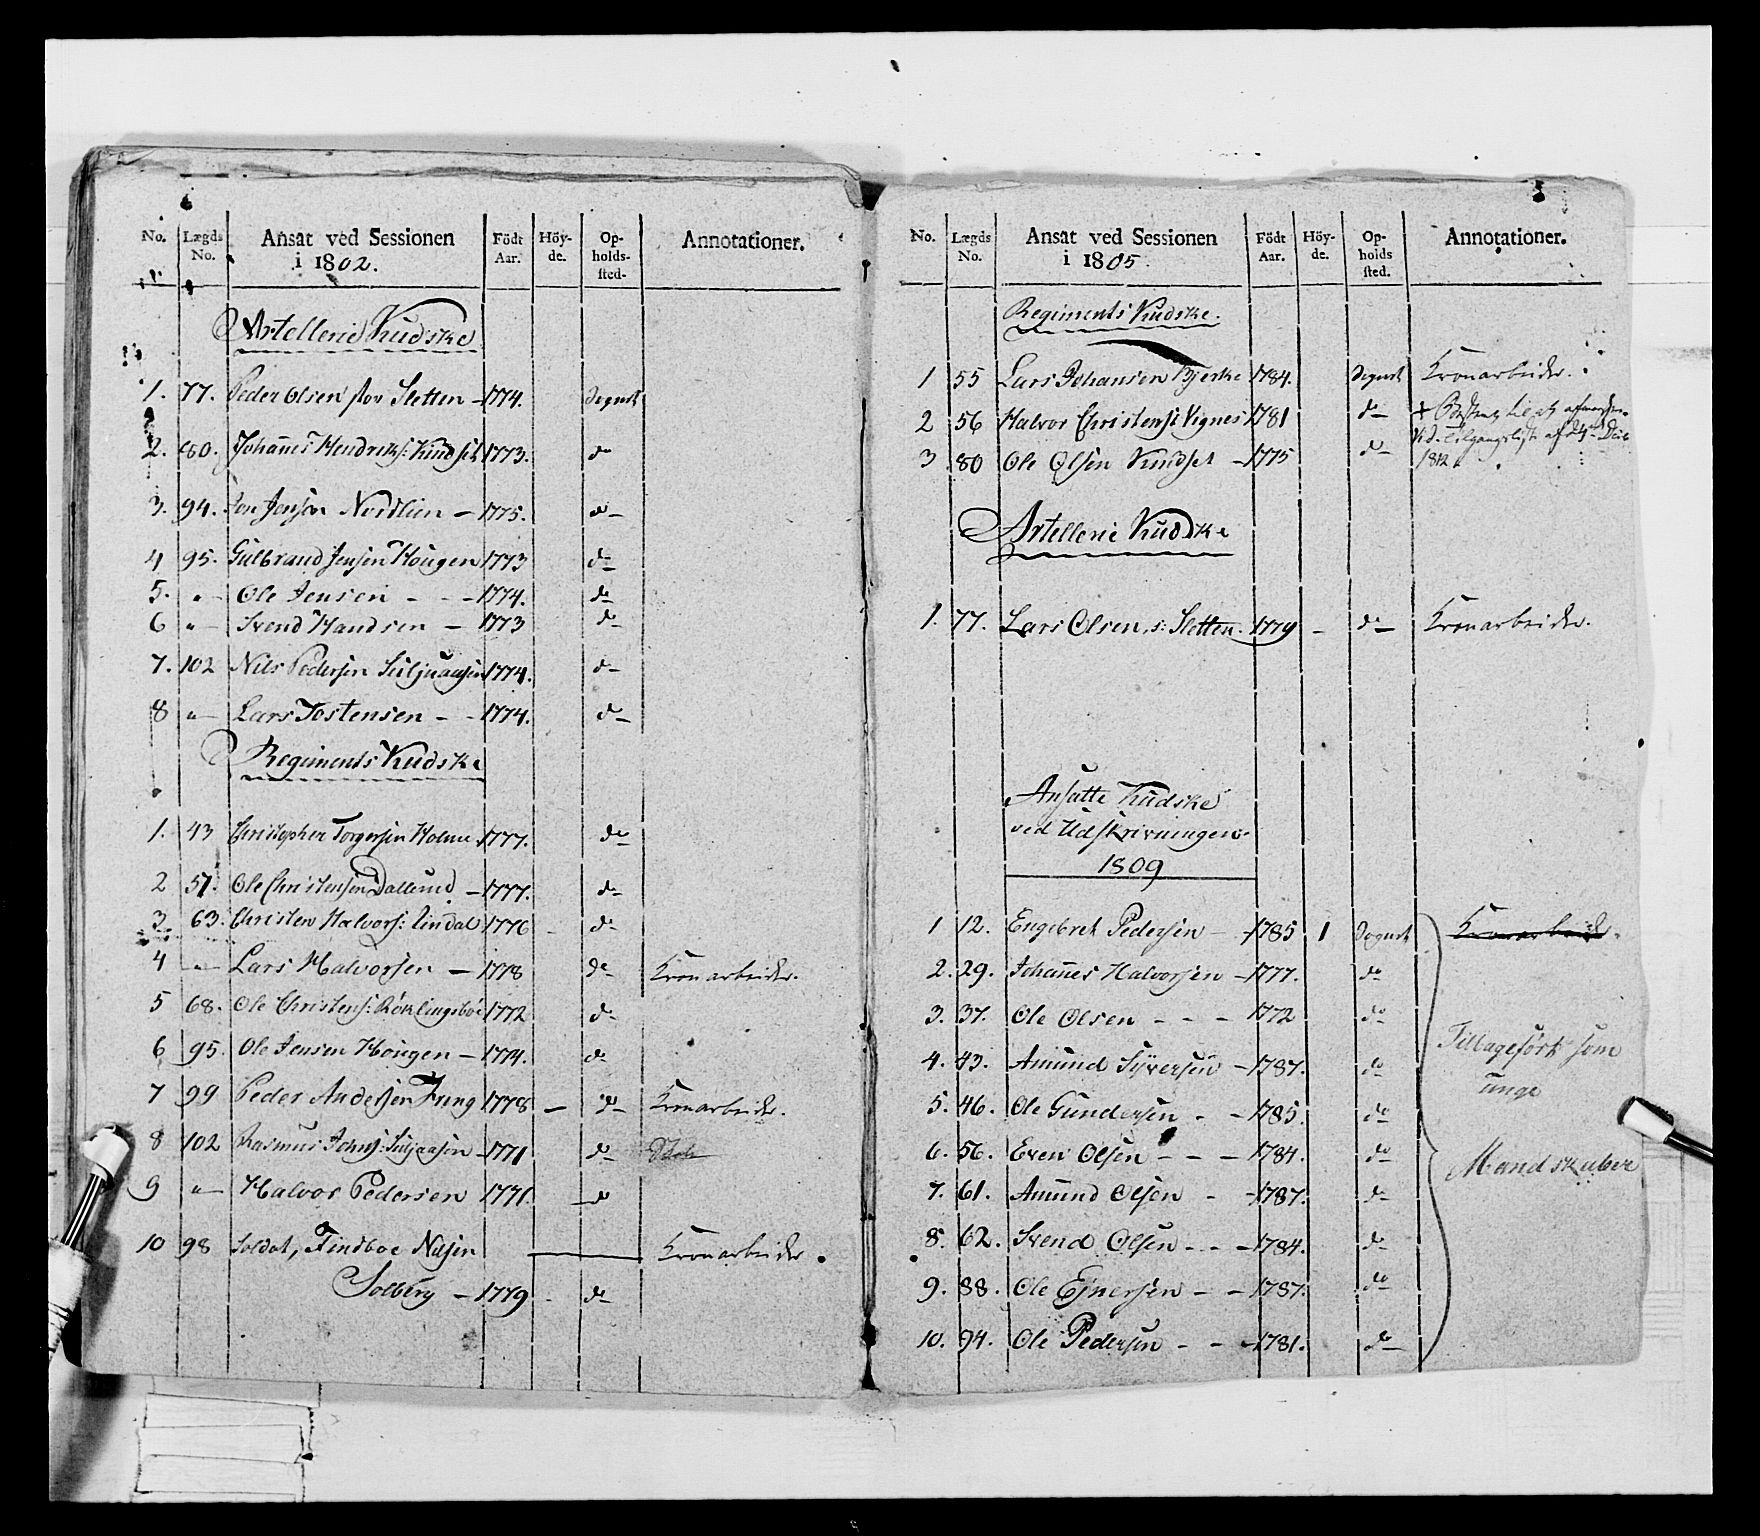 No. Lægds No. Ansat ved Sessionen i 1802. Födt Aar. Höy-de. Op-holds-sted. Annotationer.
Artellerie Kudske
1. 77. Peder Olsen Sletten - 1774. Sognet
2. 80. Johannes Hendriks: Kindset 1773. do
3. 94. Jon Jensen Nordlien - 1775. do
4 95. Gulbrand Jensen Hougen 1773 do
5. " Ole Jensen - - - 1774. do
6 " Svend Hansen - 1773 do
7. 102 Nils Pedersen 1774. do
8 " Lars Tostensen - - 1774. do
Regiments Kudske
1. 43 Christopher Torgersen Holme 1777. do
2 51. Ole Christensen Dallerud - 1777. do
3 63. Christen Halvors: Lindal 1776 - do
4 " Lars Halvorsen - 1778 do Kronarbeider.
5 68. Ole Christens: Røklingsboe 1772 do
6 95. Ole Jensen Hougen - 1774. do
7 99 Peder Andersen Fring 1778 - do Kronarbeider.
8 102 Rasmus Johns: 1771 do
9 " Halvor Pedersen 1771. do
10 98 Soldat, Findboe Nilsen Kronarbeider.
Solberg - 1779 - do
No. Lægds No. Ansat ved Sessionen i 1805. Födt Aar. Höy-de. Op-holds sted. Annotationer.
Regiments Kudske.
1 55 Lars Johansen Bjerke 1784. Sognet Kronarbeider.
2 56 Halvor Christens: Vignes 1781 do +
3 80 Ole Olsen Kindset - 1775 do 1812.
Artellerie Kudske
1. 77. Lars Olsen s: Sletten. 1779 - do Kronarbeider.
Ansatte Kudske
ved Udskrivningen
1809
1 12. Engebret Pedersen - 1785 1 Sognet Kronarbeider.
2. 29. Johannes Halvorsen - 1777. do
3. 37. Ole Olsen - - - 1772 do
4. 43. Amund Syversen - 1787. do
5. 46. Ole Gundersen - - 1785. do
6. 56. Even Olsen - - - 1784. do
7. 61. Amund Olsen - - 1787. do
8. 62. Svend Olsen - - - 1784. do
9. 88. Ole Ejnersen - - 1787. do
10. 94. Ole Pedersen - - - 1781. do
Tillagefört som
unge
Mandskaber